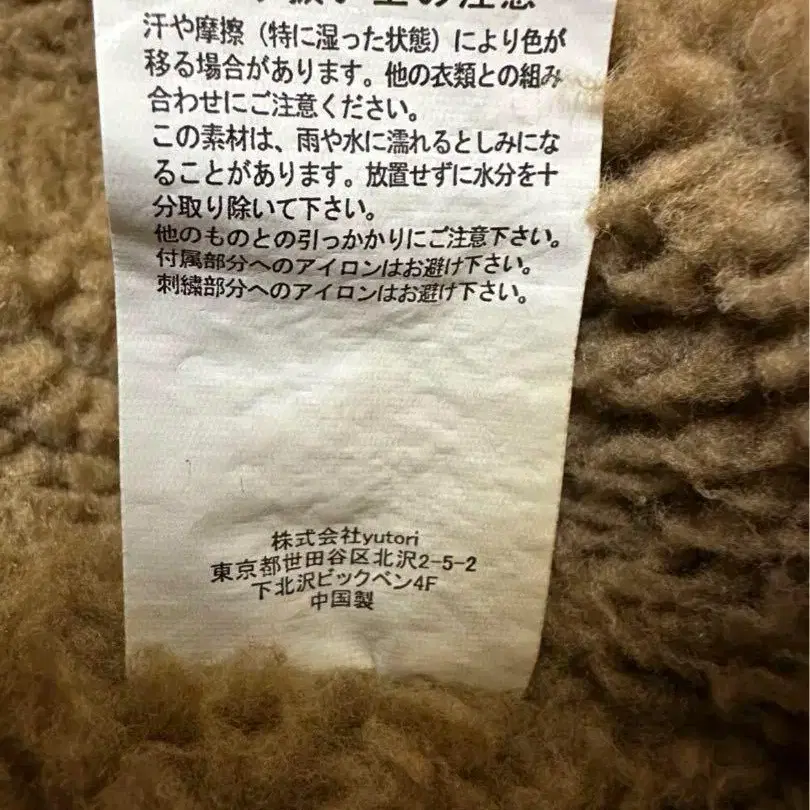 い上の注意
汗や摩擦（特に湿った状態）により色が
移る場合があります。他の衣類との組み
合わせにご注意ください。
この素材は、雨や水に濡れるとしみにな
ることがあります。放置せずに水分を十
分取り除いて下さい。
他のものとの引っかかりにご注意下さい。
付属部分へのアイロンはお避け下さい。
刺繍部分へのアイロンはお避け下さい。
株式会社yutori
東京都世田谷区北沢2-5-2
下北沢ビックベン4F
中国製